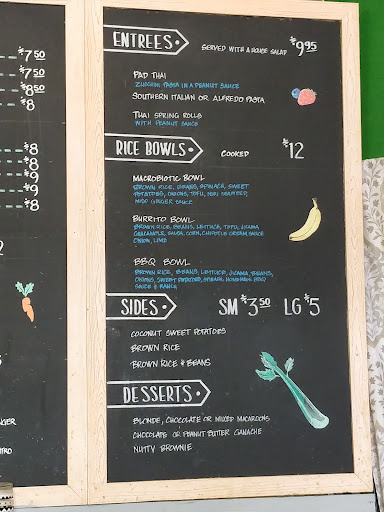 $7.50
$7.50
$8.50
$8
$8
$8
$9
$9
ENTREES
SERVED WITH A HOUSE SALAD
$9.95
PAD THAI
ZUCCHINI PASTA IN A PEANUT SAUCE
SOUTHERN ITALIAN OR ALFREDO PASTA
THAI SPRING ROLLS
WITH PEANUT SAUCE
RICE BOWLS
COOKED
$12
MACROBIOTIC BOWL
BROWN RICE, BEANS, SPINACH, SWEET
POTATOES, ONIONS, TOFU, NORI SEAWEED,
MISO GINGER SAUCE
BURRITO BOWL
BROWN RICE, BEANS, LETTUCE, TOFU, JICAMA
GUACAMOLE, SALSA, CORN, CHIPOTLE CREAM SAUCE
ONION, LIME
BBQ BOWL
BROWN RICE, BEANS, LETTUCE, JICAMA, BEANS,
ONIONS, SWEET POTATOES, HOMEMADE BBQ
SAUCE & RANCH
SIDES
SM $3.50 LG $5
COCONUT SWEET POTATOES
BROWN RICE
BROWN RICE & BEANS
DESSERTS
BLONDE, CHOCOLATE OR MIXED MACAROONS
CHOCOLATE OR PEANUT BUTTER GANACHE
NUTTY BROWNIE